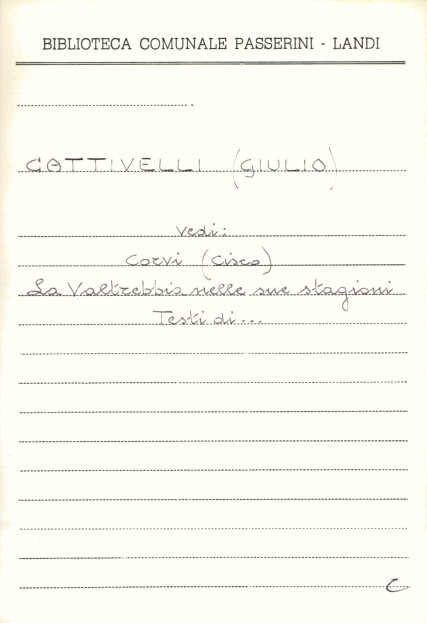 BIBLIOTECA COMUNALE PASSERINI - LANDI
CATTIVELLI (GIULIO)
Vedi:
Corvi (Cisco)
La Valtrebbia nelle sue stagioni
Testi di...
C